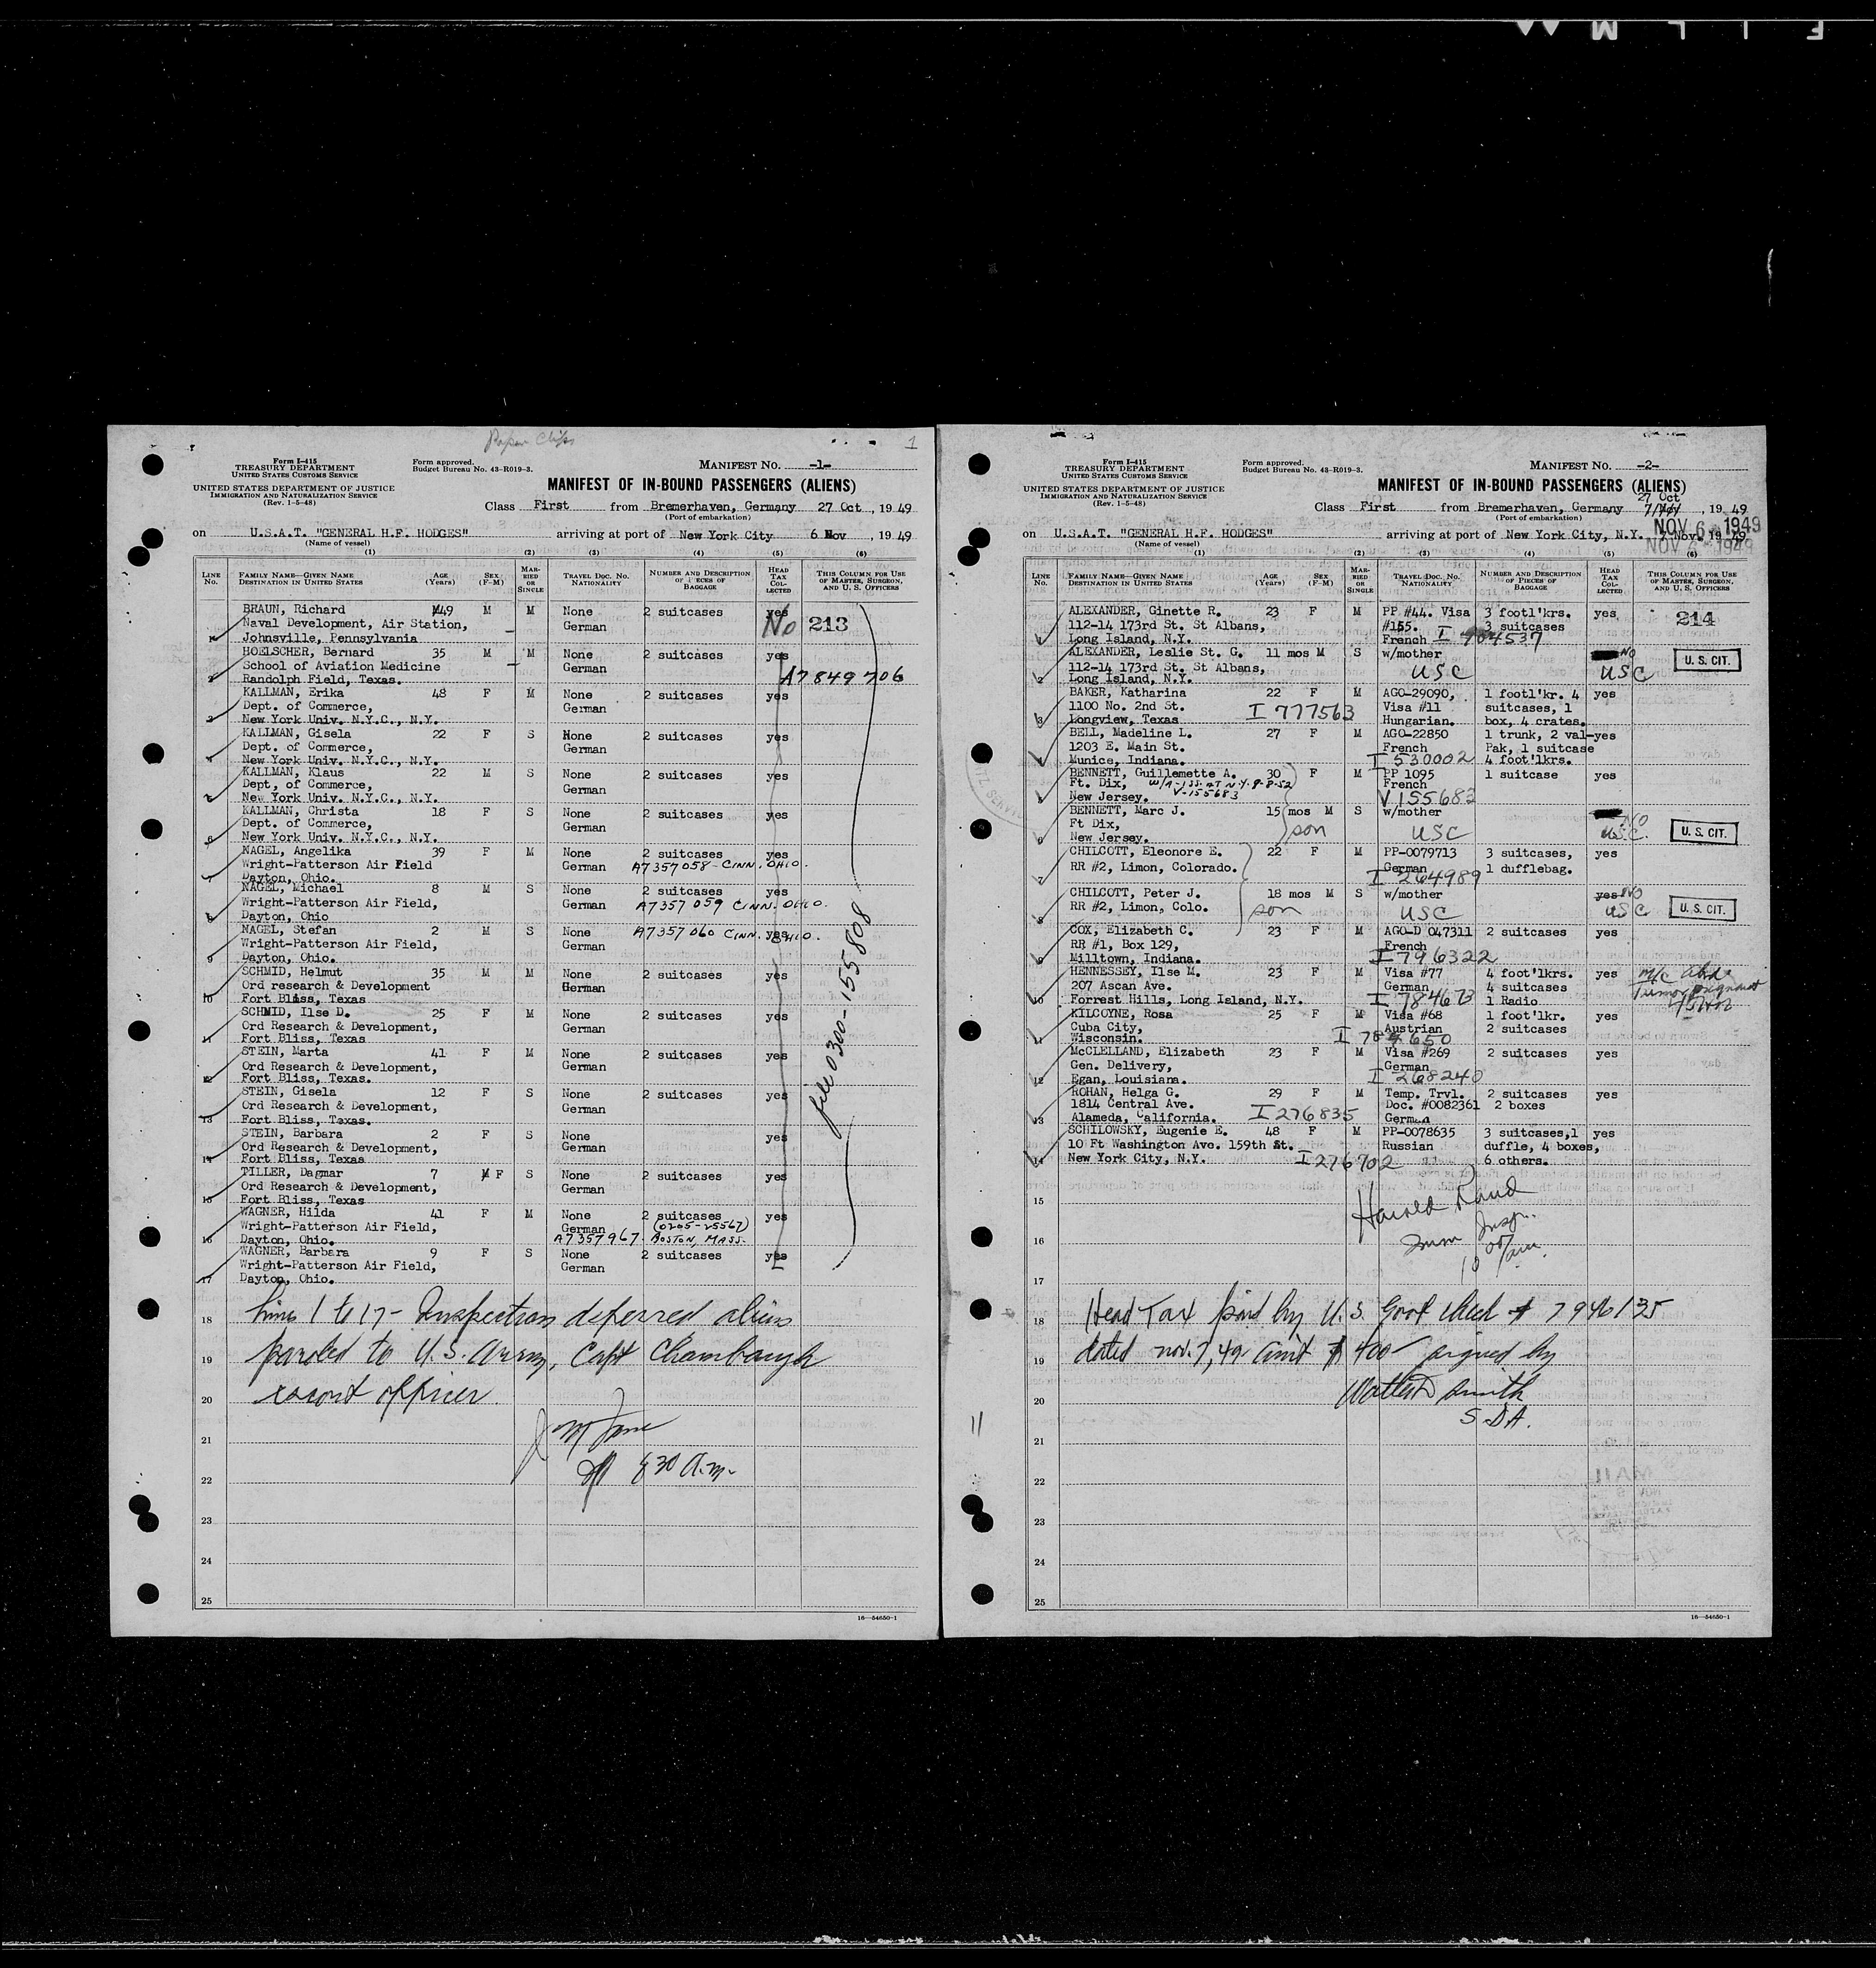 F I L M
Paper Clips
1
Form I-415
TREASURY DEPARTMENT
UNITED STATES CUSTOMS SERVICE
UNITED STATES DEPARTMENT OF JUSTICE
IMMIGRATION AND NATURALIZATION SERVICE
(Rev. 1-5-48)
Form approved.
Budget Bureau No. 43-R019-3.
MANIFEST NO. -1-
MANIFEST OF IN-BOUND PASSENGERS (ALIENS)
Class First from Bremerhaven, Germany 27 Oct, 19 49
(Port of embarkation)
on U.S.A.T. "GENERAL H.F. HODGES" arriving at port of New York City 6 Nov, 19 49
(Name of vessel)
(1) (2) (3) (4) (5) (6)
LINE No. FAMILY NAME—GIVEN NAME DESTINATION IN UNITED STATES AGE (Years) SEX (F-M) MARRIED OR SINGLE TRAVEL DOC. NO. NATIONALITY NUMBER AND DESCRIPTION OF PIECES OF BAGGAGE HEAD TAX COLLECTED THIS COLUMN FOR USE OF MASTER, SURGEON, AND U. S. OFFICERS
BRAUN, Richard 49 M M None 2 suitcases yes
Naval Development, Air Station, German No 213
1 Johnsville, Pennsylvania
HOELSCHER, Bernard 35 M M None 2 suitcases yes
School of Aviation Medicine German
2 Randolph Field, Texas. A7849706
KALLMAN, Erika 48 F M None 2 suitcases yes
Dept. of Commerce, German
3 New York Univ. N.Y.C., N.Y.
KALLMAN, Gisela 22 F S None 2 suitcases yes
Dept. of Commerce, German
4 New York Univ. N.Y.C., N.Y.
KALLMAN, Klaus 22 M S None 2 suitcases yes
Dept, of Commerce, German
New York Univ. N.Y.C., N.Y.
KALLMAN, Christa 18 F S None 2 suitcases yes
Dept. of Commerce, German
6 New York Univ. N.Y.C., N.Y.
NAGEL, Angelika 39 F M None 2 suitcases yes
Wright-Patterson Air Field German A7357058- CINN. OHIO.
7 Dayton, Ohio.
NAGEL, Michael 8 M S None 2 suitcases yes
Wright-Patterson Air Field, German A7357 059 CINN. OHIO.
8 Dayton, Ohio
NAGEL, Stefan 2 M S None A7357060 CINN. OHIO. yes
Wright-Patterson Air Field, German
9 Dayton, Ohio.
SCHMID, Helmut 35 M M None 2 suitcases yes
Ord research & Development German
10 Fort Bliss, Texas
SCHMID, Ilse D. 25 F M None 2 suitcases yes
Ord Research & Development, German
11 Fort Bliss, Texas
STEIN, Marta 41 F M None 2 suitcases yes
Ord Research & Development, German
12 Fort Bliss, Texas.
STEIN, Gisela 12 F S None 2 suitcases yes
Ord Research & Development, German
13 Fort Bliss, Texas.
STEIN, Barbara 2 F S None yes
Ord Research & Development, German
14 Fort Bliss, Texas
TILLER, Dagmar 7 M F S None 2 suitcases yes
Ord Research & Development, German
15 Fort Bliss, Texas
WAGNER, Hilda 41 F M None 2 suitcases yes
Wright-Patterson Air Field, German (0205-25567)
16 Dayton, Ohio. A7357967 BOSTON, MASS.
WAGNER, Barbara 9 F S None 2 suitcases yes
Wright-Patterson Air Field, German
17 Dayton, Ohio.
file 0300-155808
18 Lines 1 to 17- Inspection deferred aliens
19 paroled to U.S. Army, Capt Chambaugh
20 escort officer.
21
22 8 30 a.m.
23
24
25
16—54650-1
Form I-415
TREASURY DEPARTMENT
UNITED STATES CUSTOMS SERVICE
UNITED STATES DEPARTMENT OF JUSTICE
IMMIGRATION AND NATURALIZATION SERVICE
(Rev. 1-5-48)
Form approved.
Budget Bureau No. 43-R019-3.
MANIFEST NO. -2-
MANIFEST OF IN-BOUND PASSENGERS (ALIENS)
27 Oct
Class First from Bremerhaven, Germany , 19 49
(Port of embarkation)
NOV 6 - 1949
on U.S.A.T. "GENERAL H.F. HODGES" arriving at port of New York City, N.Y. 7 Nov. 19 49
(Name of vessel)
(1) (2) (3) (4) (5) (6)
LINE No. FAMILY NAME—GIVEN NAME DESTINATION IN UNITED STATES AGE (Years) SEX (F-M) MARRIED OR SINGLE TRAVEL DOC. NO. NATIONALITY NUMBER AND DESCRIPTION OF PIECES OF BAGGAGE HEAD TAX COLLECTED THIS COLUMN FOR USE OF MASTER, SURGEON, AND U. S. OFFICERS
ALEXANDER, Ginette R. 23 F M PP #44. Visa 3 footl'krs. yes
112-14 173rd St. St Albans, #155. 3 suitcases 214
1 Long Island, N.Y. French I 904537
ALEXANDER, Leslie St. G. 11 mos M S w/mother NO
112-14 173rd St. St Albans, USC USC U. S. CIT.
2 Long Island, N.Y.
BAKER, Katharina 22 F M AGO-29090, 1 footl'kr. 4 yes
1100 No. 2nd St. Visa #11 suitcases, 1
3 Longview, Texas I 777563 Hungarian. box, 4 crates.
BELL, Madeline L. 27 F M AGO-22850 1 trunk, 2 val-yes
1203 E. Main St. French Pak, 1 suitcase
4 Munice, Indiana. I 530002 4 foot'lkrs.
BENNETT, Guillemette A. 30 F M PP 1095 1 suitcase yes
Ft. Dix, W/A-155. AT N.Y. 9-8-52 French
New Jersey. V-155683 V155683
BENNETT, Marc J. 15 mos M S w/mother NO
Ft Dix, son USC USC. U. S. CIT.
6 New Jersey.
CHILCOTT, Eleonore E. 22 F M PP-0079713 3 suitcases, yes
RR #2, Limon, Colorado. German 1 dufflebag.
7 I 264989
CHILCOTT, Peter J. 18 mos M S w/mother yes NO
RR #2, Limon, Colo. son USC USC U. S. CIT.
8
COX, Elizabeth C. 23 F M AGO-D 047311 2 suitcases yes
RR #1, Box 129, French
9 Milltown, Indiana. I 796322
HENNESSEY, Ilse M. 23 F M Visa #77 4 foot'lkrs. yes
207 Ascan Ave. German 4 suitcases
10 Forrest Hills, Long Island, N.Y. I 784673 1 Radio
KILCOYNE, Rosa 25 F M Visa #68 1 foot'lkr. yes
Cuba City, Austrian 2 suitcases
11 Wisconsin. I 784650
McCLELLAND, Elizabeth 23 F M Visa #269 2 suitcases yes
Gen. Delivery, German
12 Egan, Louisiana. I 268240
ROHAN, Helga G. 29 F M Temp. Trvl. 2 suitcases yes
1814 Central Ave. Doc. #0082361 2 boxes
13 Alameda, California. I 276835 German
SCHILOWSKY, Eugenie E. 48 F M PP-0078635 3 suitcases,1 yes
10 Ft Washington Ave. 159th St. Russian duffle, 4 boxes,
14 New York City, N.Y. I 276702 6 others.
15 Harold Rand
16 Imm Insp.
17 10 00 am.
18 Head Tax paid by U.S. Govt check # 7946135
19 dated nov. 7, 49 amt $ 400 signed by
20 Smith
S.D.A.
21
22
23
24
25
16—54650-1